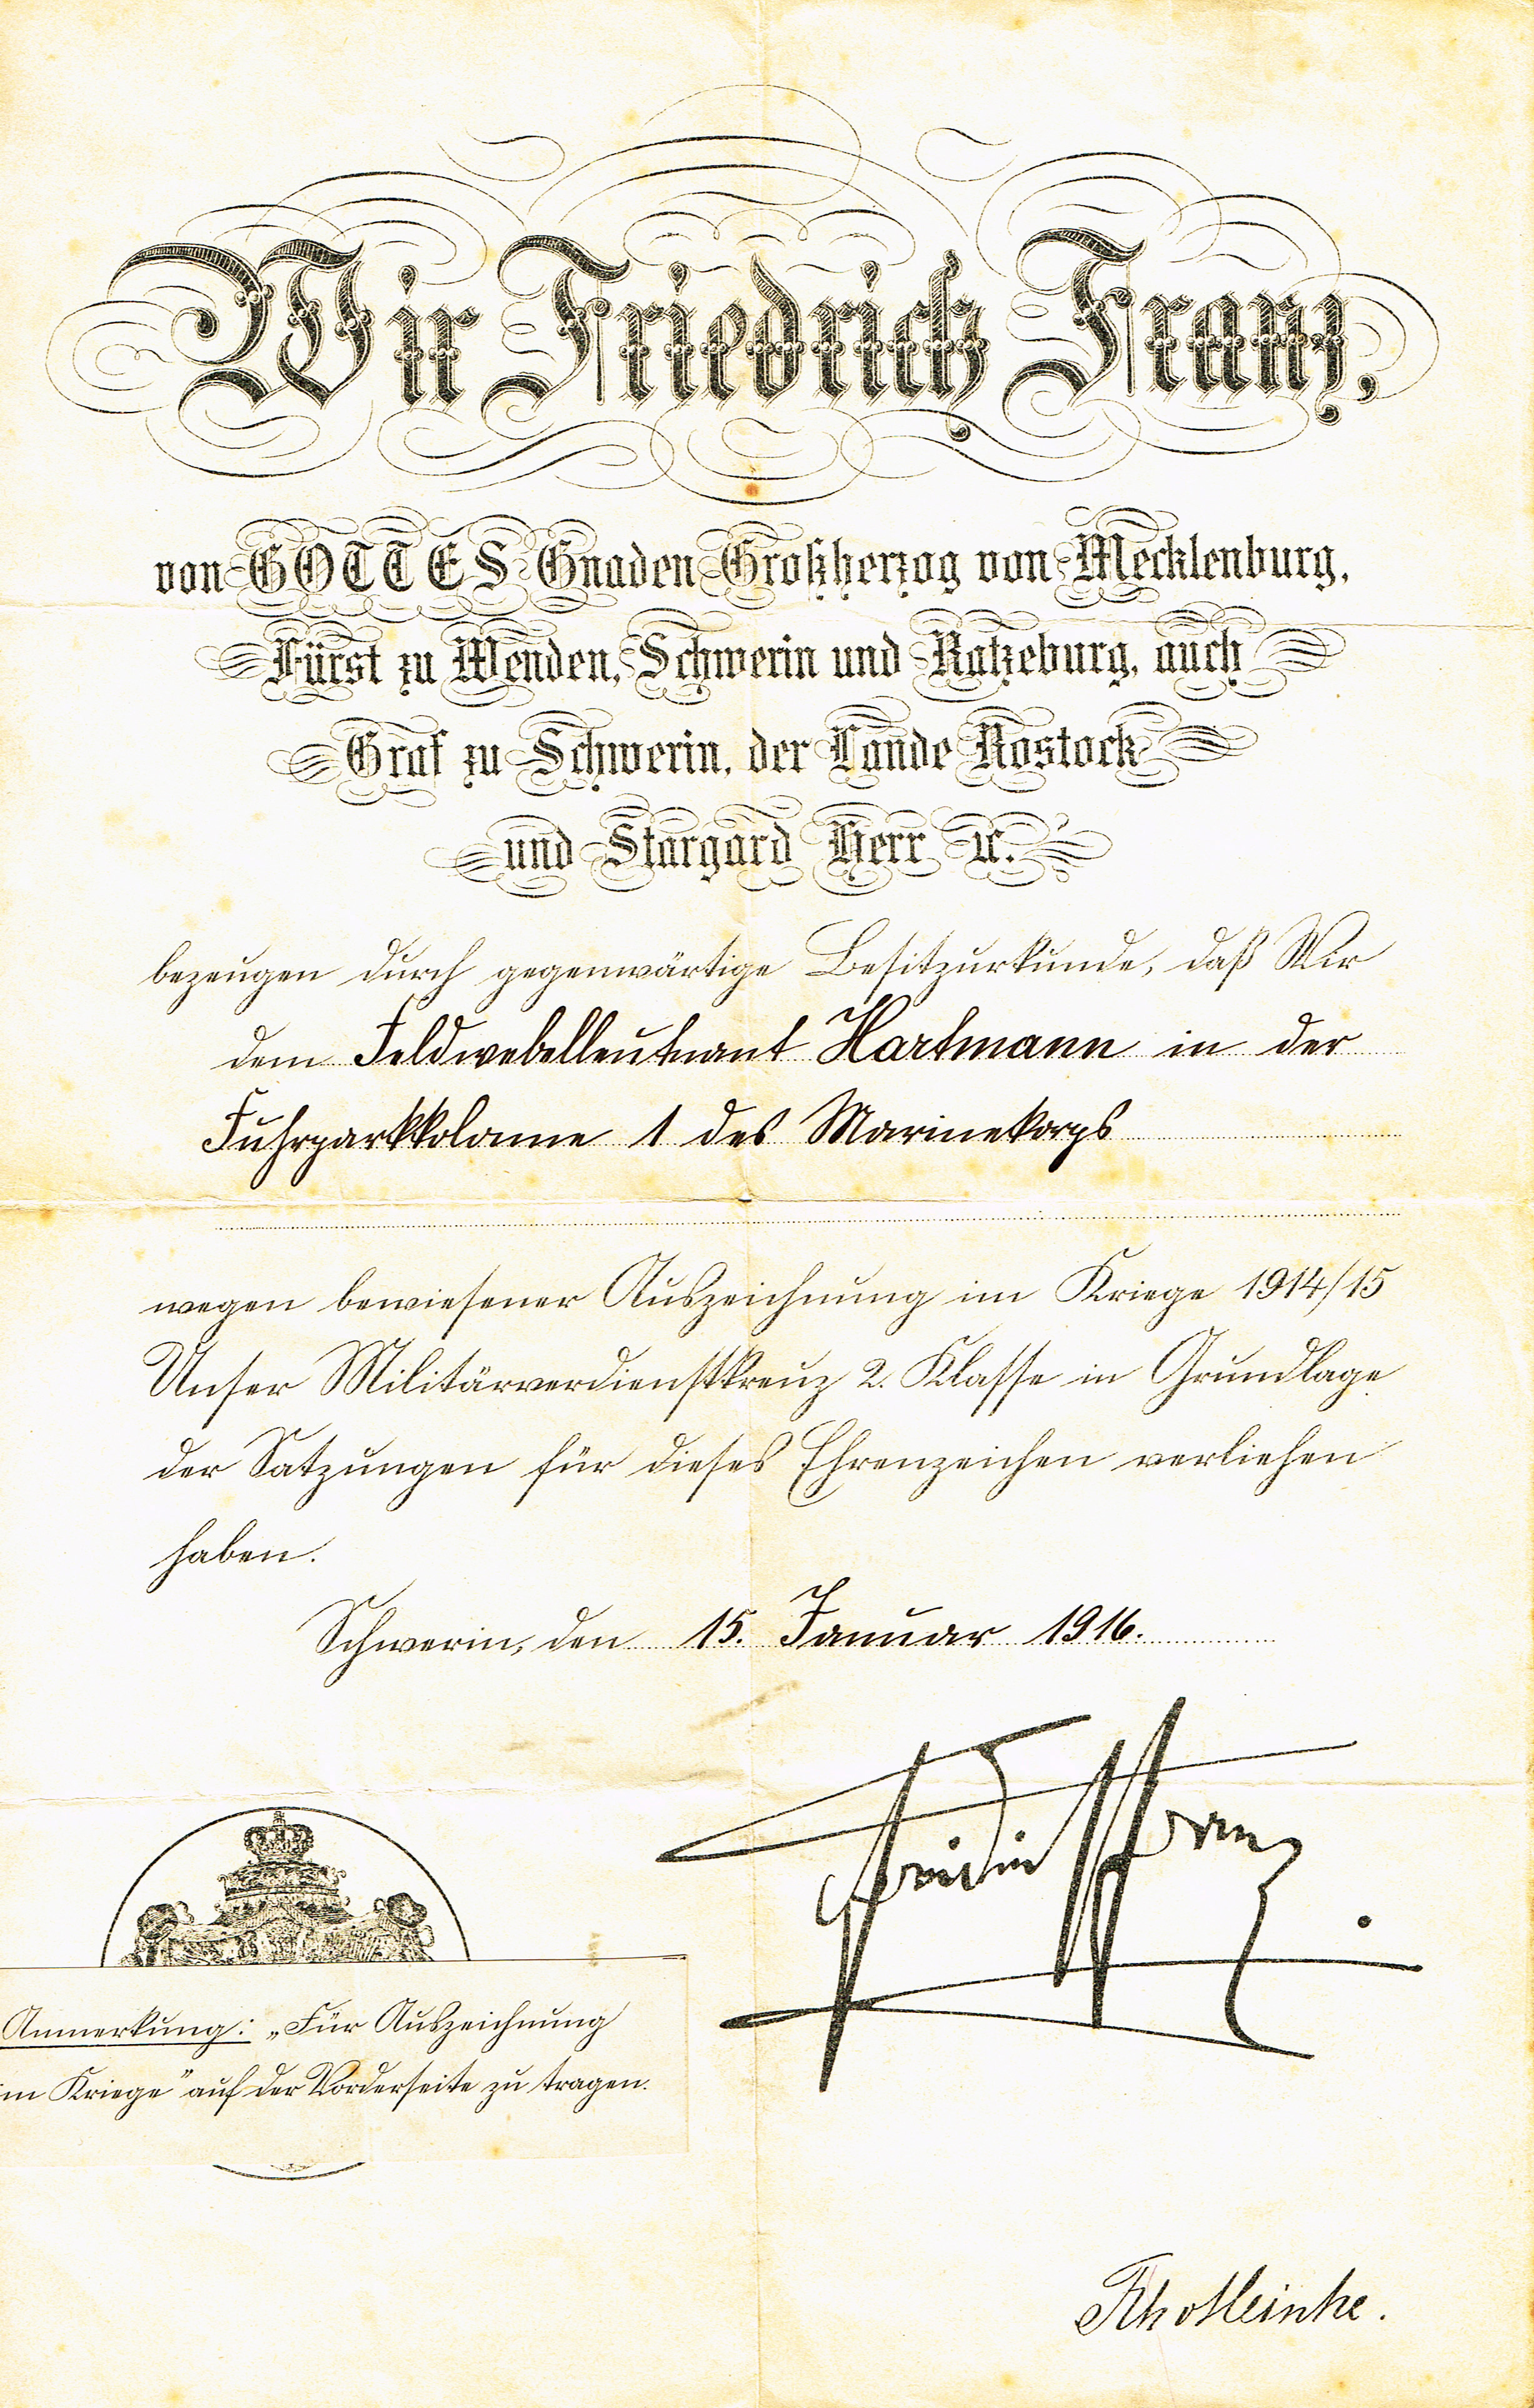 Wir Friedrich Franz,
von GOTTES Gnaden Großherzog von Mecklenburg,
Fürst zu Wenden, Schwerin und Ratzeburg, auch
Graf zu Schwerin, der Lande Rostock
und Stargard Herr ꝛc.
bezeugen durch gegenwärtige Besitzurkunde, daß Wir
dem Feldwebelleutnant Hartmann in der
Fuhrparkkolonne 1 des Marinekorps
wegen bewiesener Auszeichnung im Kriege 1914/15
Unser Militärverdienstkreuz 2. Klasse in Grundlage
der Satzungen für dieses Ehrenzeichen verliehen
haben.
Schwerin, den 15. Januar 1916.
Friedrich Franz
Anmerkung: „Für Auszeichnung
im Kriege" auf der Vorderseite zu tragen.